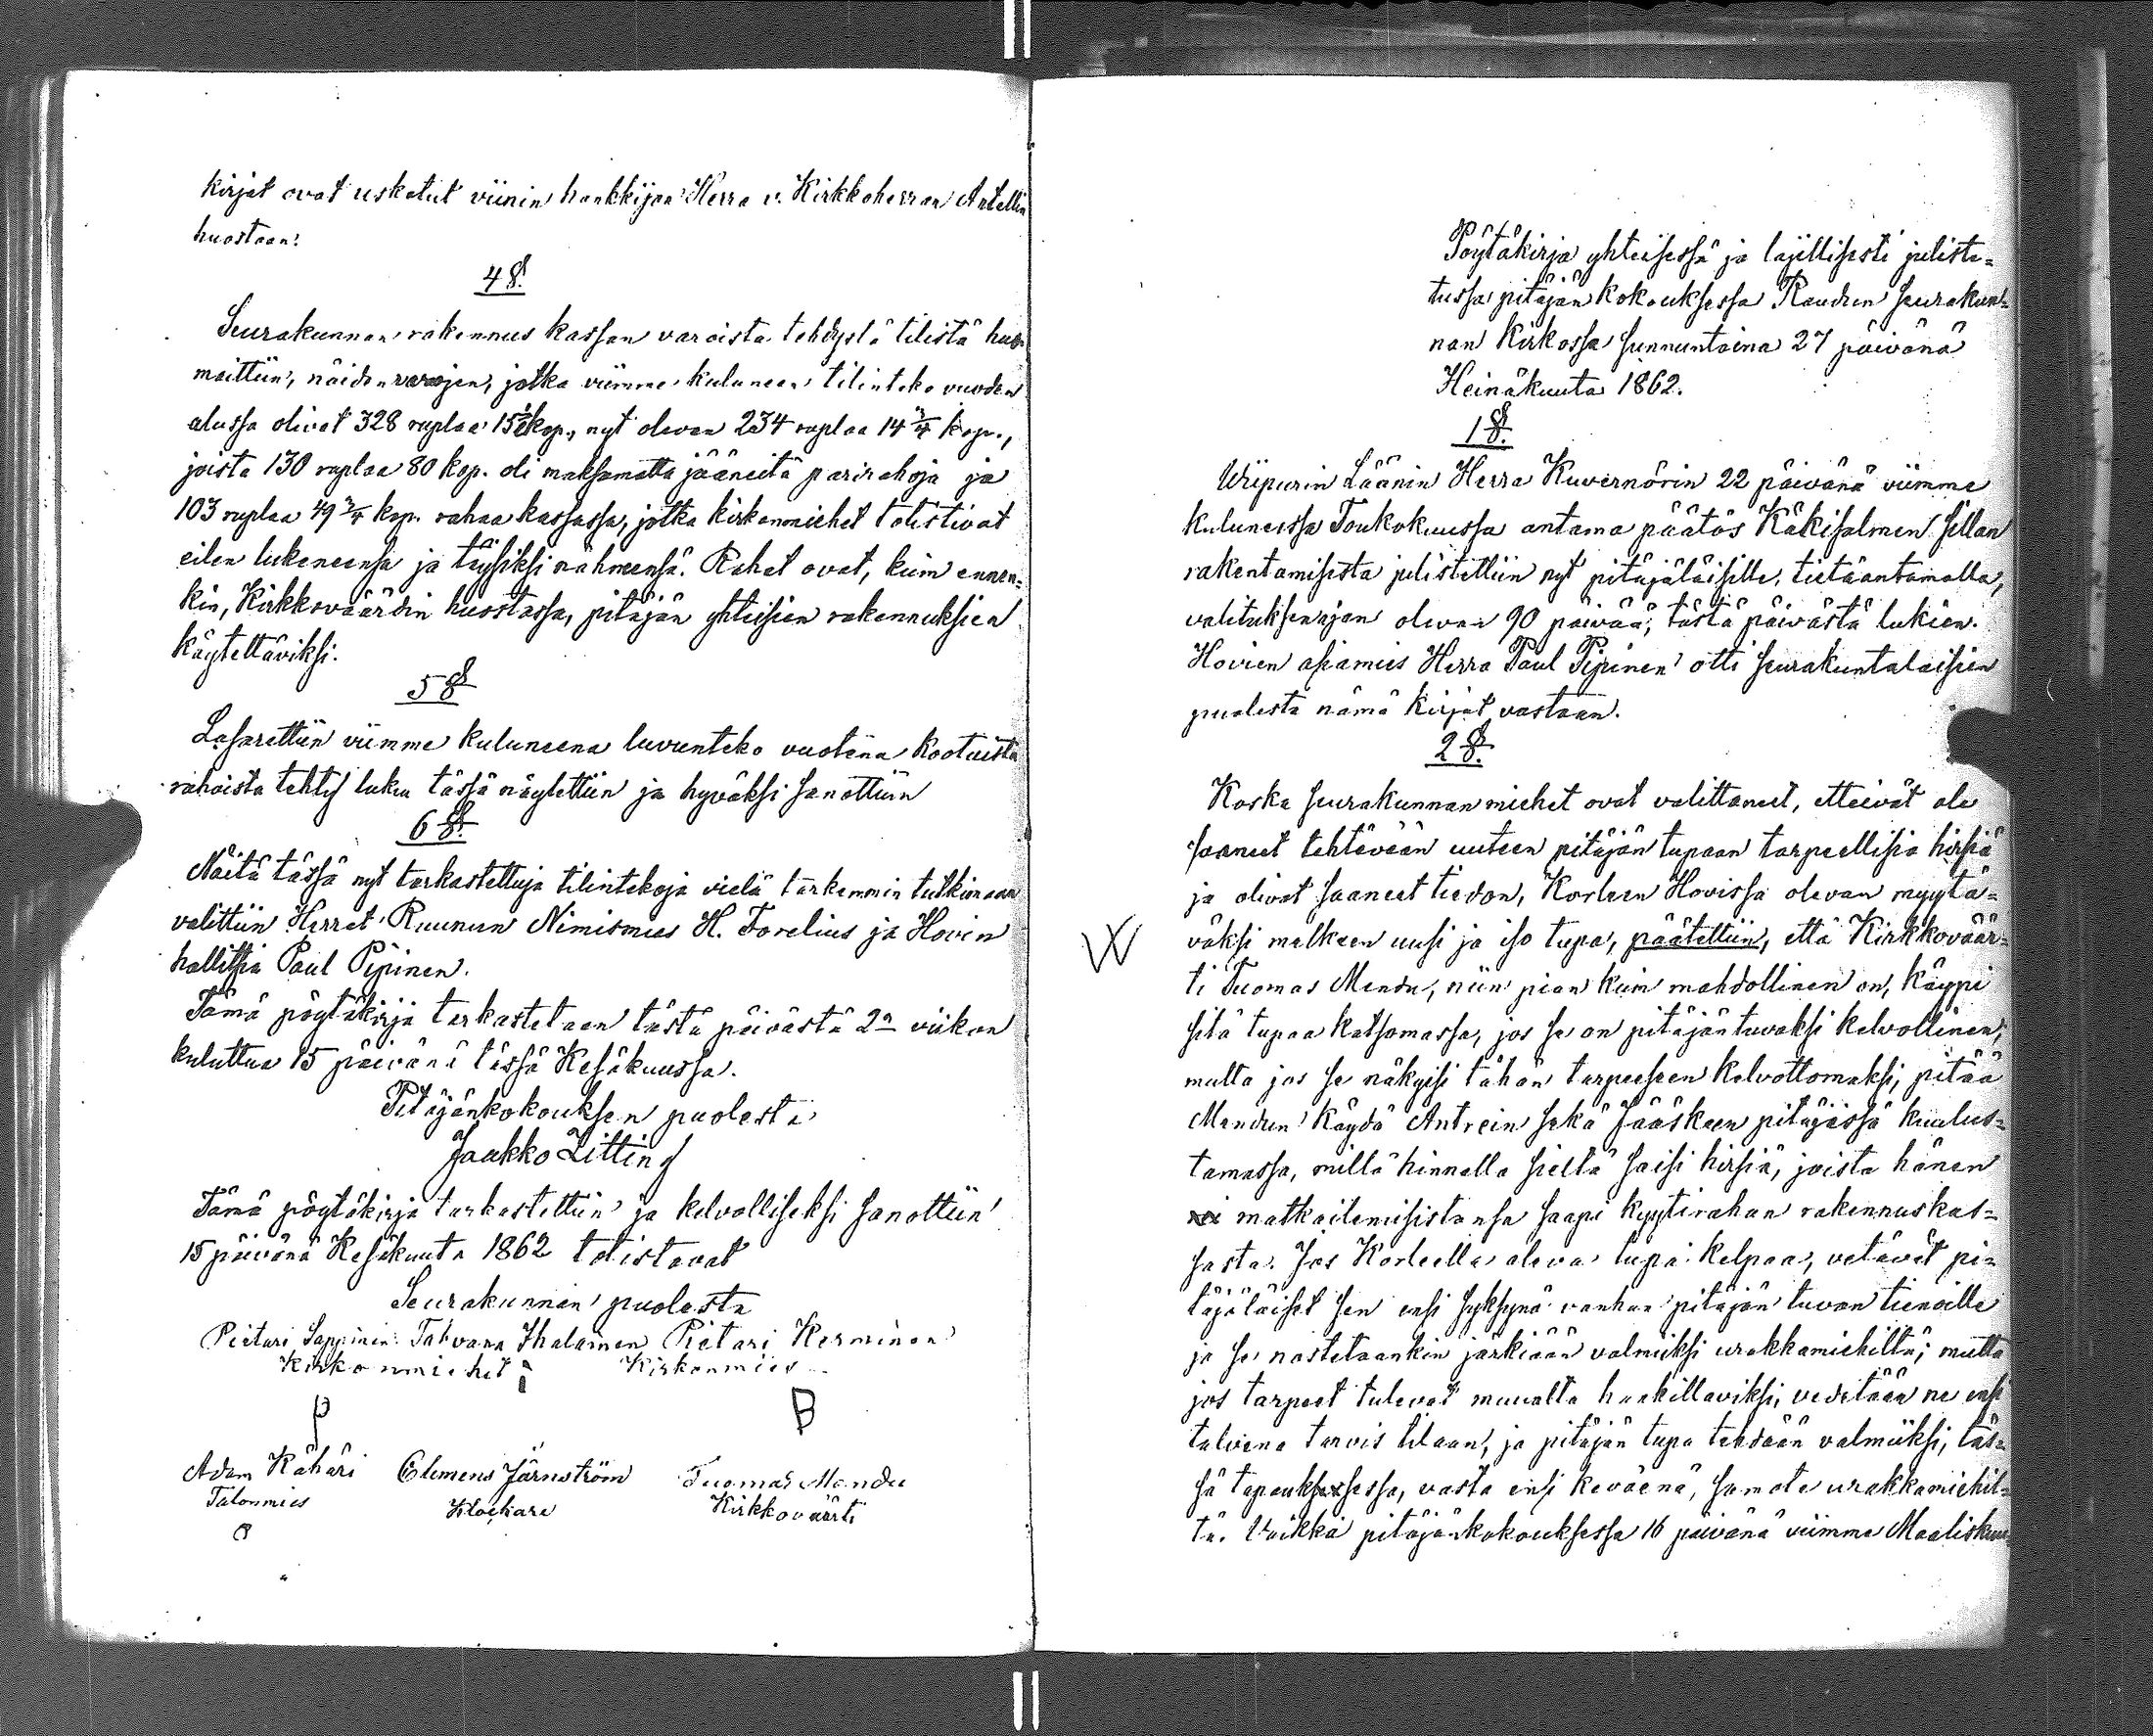 kirjat ovat uskotut viinin hankkijan Herra v. Kirkkoherran Antellin
huostaan.
4 §.
Seurakunnan rakennus kassan varoista tehdystä tilistä huo-
maittiin, näiden varojen, jotka viimme kuluneen tilinteko vuoden
alussa olivat 328 ruplaa 15½ kop., nyt olevan 234 ruplaa 14 ¾ kop.,
joista 130 ruplaa 80 kop. oli maksamatta jääneitä parirahoja ja
103 ruplaa 49 ¾ kop. rahaa kassassa, jotka kirkonmiehet totistivat
eilen lukeneensa ja täysiksi nähneensä. Rahat ovat, kuin ennen-
kin, Kirkkoväärdin huostassa, pitäjän yhteisien rakennuksien
käytettäviksi.
5 §
Lasarettiin viimme kuluneena luvunteko vuotena kootuista
rahoista tehty luku tässä näytettiin ja hyväksi sanottiin
6 §.
Näitä tässä nyt tarkastettuja tilintekoja vielä tarkemmin tutkimaan
valittiin Herrat Ruunun Nimismies H. Forelius ja Hovin
hallitsia Paul Pipinen.
Tämä pöytäkirja tarkastetaan tästä päivästä 2:n viikon
kuluttua 15 päivänä tässä Kesäkuussa.
Pitäjänkokouksen puolesta
Jaakko Zitting
Tämä pöytäkirja tarkastettiin ja kelvolliseksi sanottiin
15 päivänä Kesäkuuta 1862 totistavat
Seurakunnan puolesta
Pietari Lappinen Tahvana Ihalainen Pietari Kerminen
Kirkonmiehet Kirkonmies
P B
Adam Kähäri Clemens Järnström Tuomas Mondu
Talonmies Klockare Kirkkoväärti
Pöytäkirja yhteisessä ja lajillisesti juliste-
tussa pitäjän kokouksessa Raudun seurakun-
nan Kirkossa sunnuntaina 27 päivänä
Heinäkuuta 1862.
1 §.
Wiipurin Läänin Herra Kuvernörin 22 päivänä viimme
kuluneessa Toukokuussa antama päätös Käkisalmen sillan
rakentamisesta julistettiin nyt pitäjäläisille, tietäantamalla,
valituksenajan olevan 90 päivää, tästä päivästä lukien.
Hovien asiamies Herra Paul Pipinen otti seurakuntalaisien
puolesta nämä kirjat vastaan.
2 §.
Koska seurakunnan miehet ovat valittaneet, etteivät ole
saaneet tehtävään uuteen pitäjän tupaan tarpeellisia hirsiä
ja olivat saaneet tiedon, Korleen Hovissa olevan myytä-
väksi melkeen uusi ja iso tupa, päätettiin, että Kirkkoväär-
ti Tuomas Mondu, niin pian kuin mahdollinen on, käypi
sitä tupaa katsomassa, jos se on pitäjän tuvaksi kelvollinen;
mutta jos se näkyisi tähän tarpeeseen kelvottomaksi, pitää
Mondun käydä Antrein sekä Jääskeen pitäjissä kuulus-
tamassa, millä hinnalla sieltä saisi hirsiä, joista hänen
matkailemisistansa saapi kyytirahan rakennuskas-
sasta. Jos Korleella oleva tupa kelpaa, vetävät pi-
täjäläiset sen ensi syksynä vanhan pitäjän tuvan tienoille
ja se nostetaankin järkiään valmiiksi urakkamiehiltä; mutta
jos tarpeet tulevat muualta hankittaviksi, vedetään ne ensi
talvena tarvis tilaan, ja pitäjän tupa tehdään valmiiksi, täs-
sä tapauksessa, vasta ensi keväenä, samate urakkamiehil-
tä. Vaikka pitäjänkokouksessa 16 päivänä viimme Maaliskuu